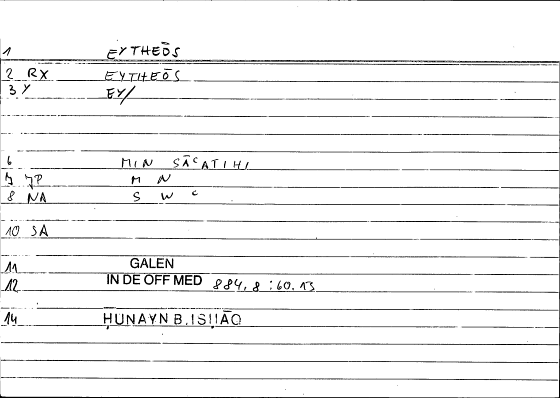 1 EYTHEŌS
2 RX EYTHEŌS
3 Y EY/
6 MIN SĀʿATIHI
7 JP M N
8 NA S W ʿ
10 SA
11 GALEN
12 IN DE OFF MED 884.8 : 60.13
14 ḤUNAYN B. ISḤĀQ